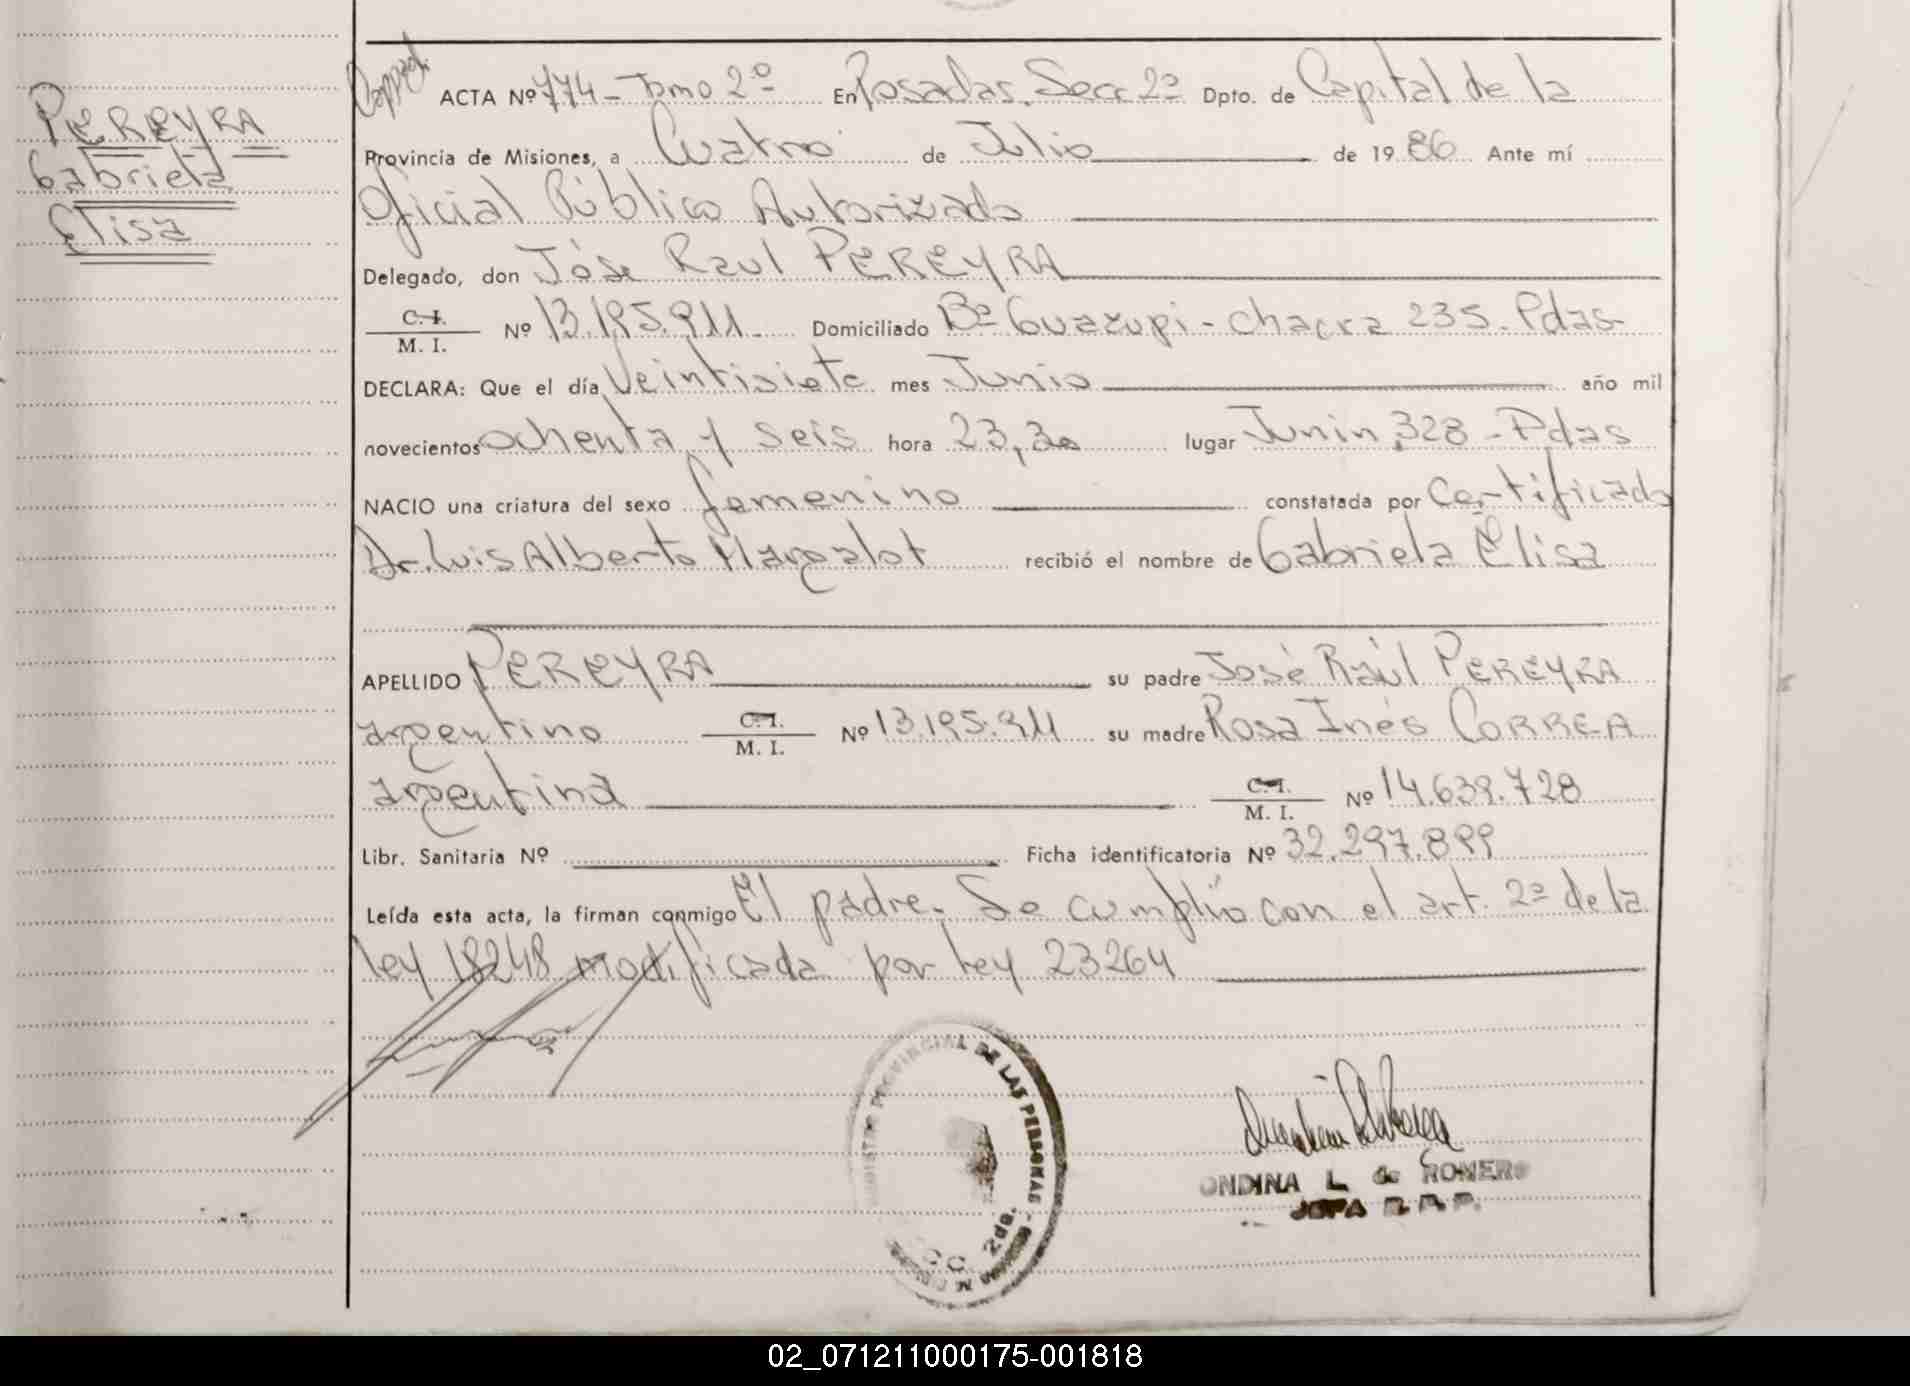 PEREYRA
Gabriela
Elisa
ACTA Nº 774 - Tomo 2º En Posadas. Secc 2ª Dpto. de Capital de la
Provincia de Misiones, a Cuatro de Julio de 1986 Ante mí
Oficial Público Autorizado
Delegado, don José Raul PEREYRA
C.I.
M. I. Nº 13.195.911 Domiciliado Bº Guazupi - chacra 235. Pdas
DECLARA: Que el día Veintisiete mes Junio año mil
novecientos ochenta y seis hora 23,30 lugar Junin 328 - Pdas
NACIO una criatura del sexo femenino constatada por Certificado
Dr. Luis Alberto Margalot recibió el nombre de Gabriela Elisa
APELLIDO PEREYRA su padre José Raúl PEREYRA
argentino C.I. M. I. Nº 13.195.911 su madre Rosa Inés CORREA
argentina C.I. M. I. Nº 14.639.728
Libr. Sanitaria Nº Ficha identificatoria Nº 32.297.899
Leída esta acta, la firman conmigo El padre. Se cumplio con el art. 2º de la
ley 18248 modificada por ley 23264
PROVINCIAL DE LAS PERSONAS
2da.
ONDINA L. de ROMERO
JEFA
02_071211000175-001818